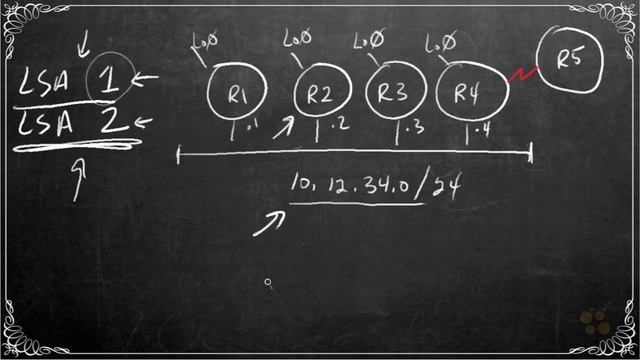 Lo0 Lo0 Lo0 Lo0
R1 R2 R3 R4 R5
LSA 1
LSA 2
.1 .2 .3 .4
10.12.34.0/24